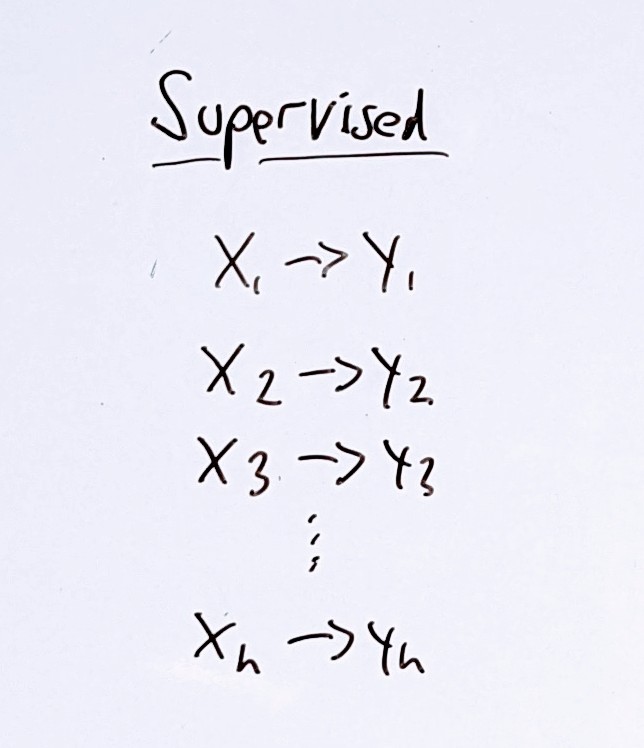 Supervised
X₁ → Y₁
X₂ → Y₂
X₃ → Y₃
⋮
Xₙ → Yₙ